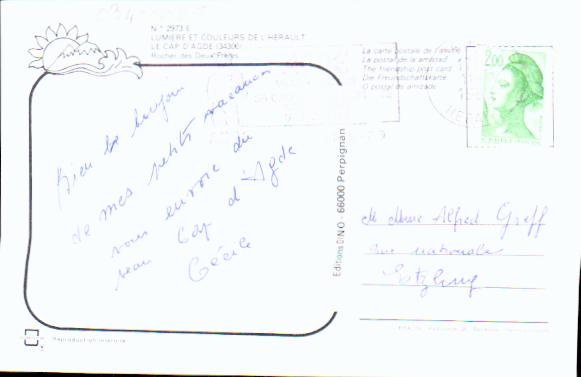 N° 2973 E
LUMIERE ET COULEURS DE L'HERAULT
LE CAP D'AGDE (34300)
Rocher des Deux Frères
La carte postale de l'amitié
La postal de la amistad
The friendship post card
Die Freundschaftskarte
O postal de amizade
2,00
Bien le bonjour
de mes petits vacances
vous envoie du
beau Cap d'Agde
Cécile
Editions DINO - 66000 Perpignan
M Mme Alfred Greff
rue nationale
Etzling
Reproduction interdite